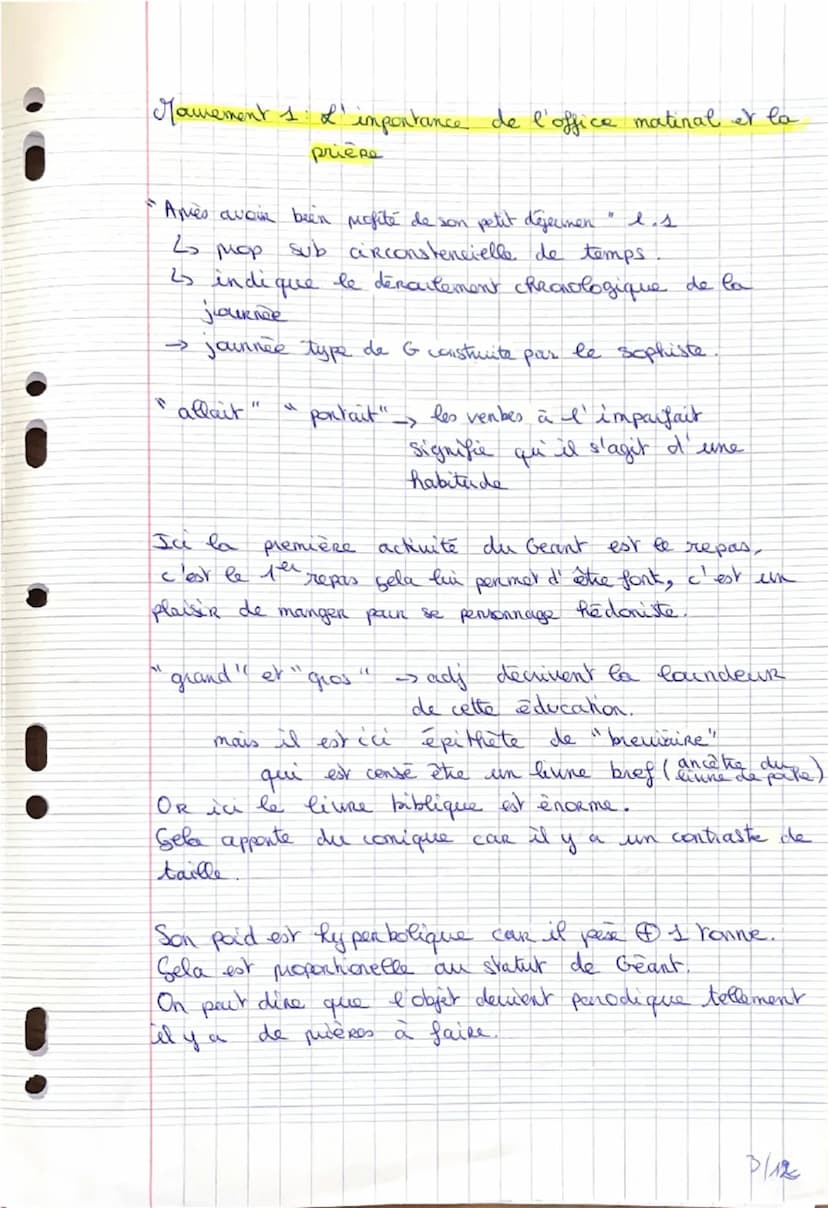 Mouvement 1 : L'importance de l'office matinal et la
prière
"Après avoir bein profité de son petit déjeuner" l.1
↳ prop sub circonstencielle de temps.
↳ indique le déroulement chronologique de la
journée
→ journée type de G construite par le sophiste.
"allait" "portait" → les verbes à l'imparfait
signifie qu'il s'agit d'une
habitude
Ici la première activité du Geant est le repas,
c'est le 1er repas Cela lui permet d'être fort, c'est un
plaisir de manger pour se personnage hédoniste.
"grand" et "gros" → adj décrivent la lourdeur
de cette éducation.
mais il est ici épithète de "breviaire"
qui est censé être un livre bref (ancêtre du
livre de poche)
OR ici le livre biblique est énorme.
Cela apporte du comique car il y a un contraste de
taille.
Son poid est hyperbolique car il pèse ⊕ 1 tonne.
Cela est proportionelle au statut de Géant.
On peut dire que l'objet devient parodique tellement
il y a de prières à faire.
3/12